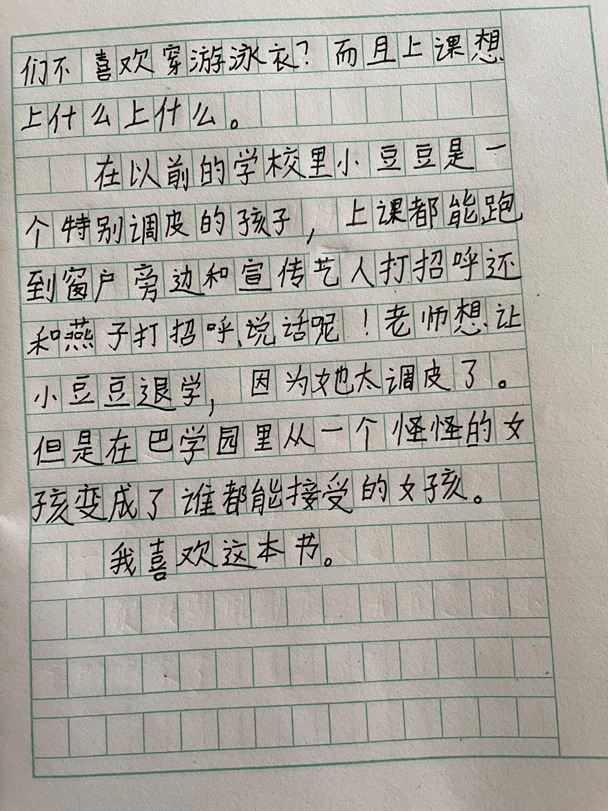 们不喜欢穿游泳衣？而且上课想
上什么上什么。
在以前的学校里小豆豆是一
个特别调皮的孩子，上课都能跑
到窗户旁边和宣传艺人打招呼还
和燕子打招呼、说话呢！老师想让
小豆豆退学，因为她太调皮了。
但是在巴学园里从一个怪怪的女
孩变成了谁都能接受的女孩。
我喜欢这本书。